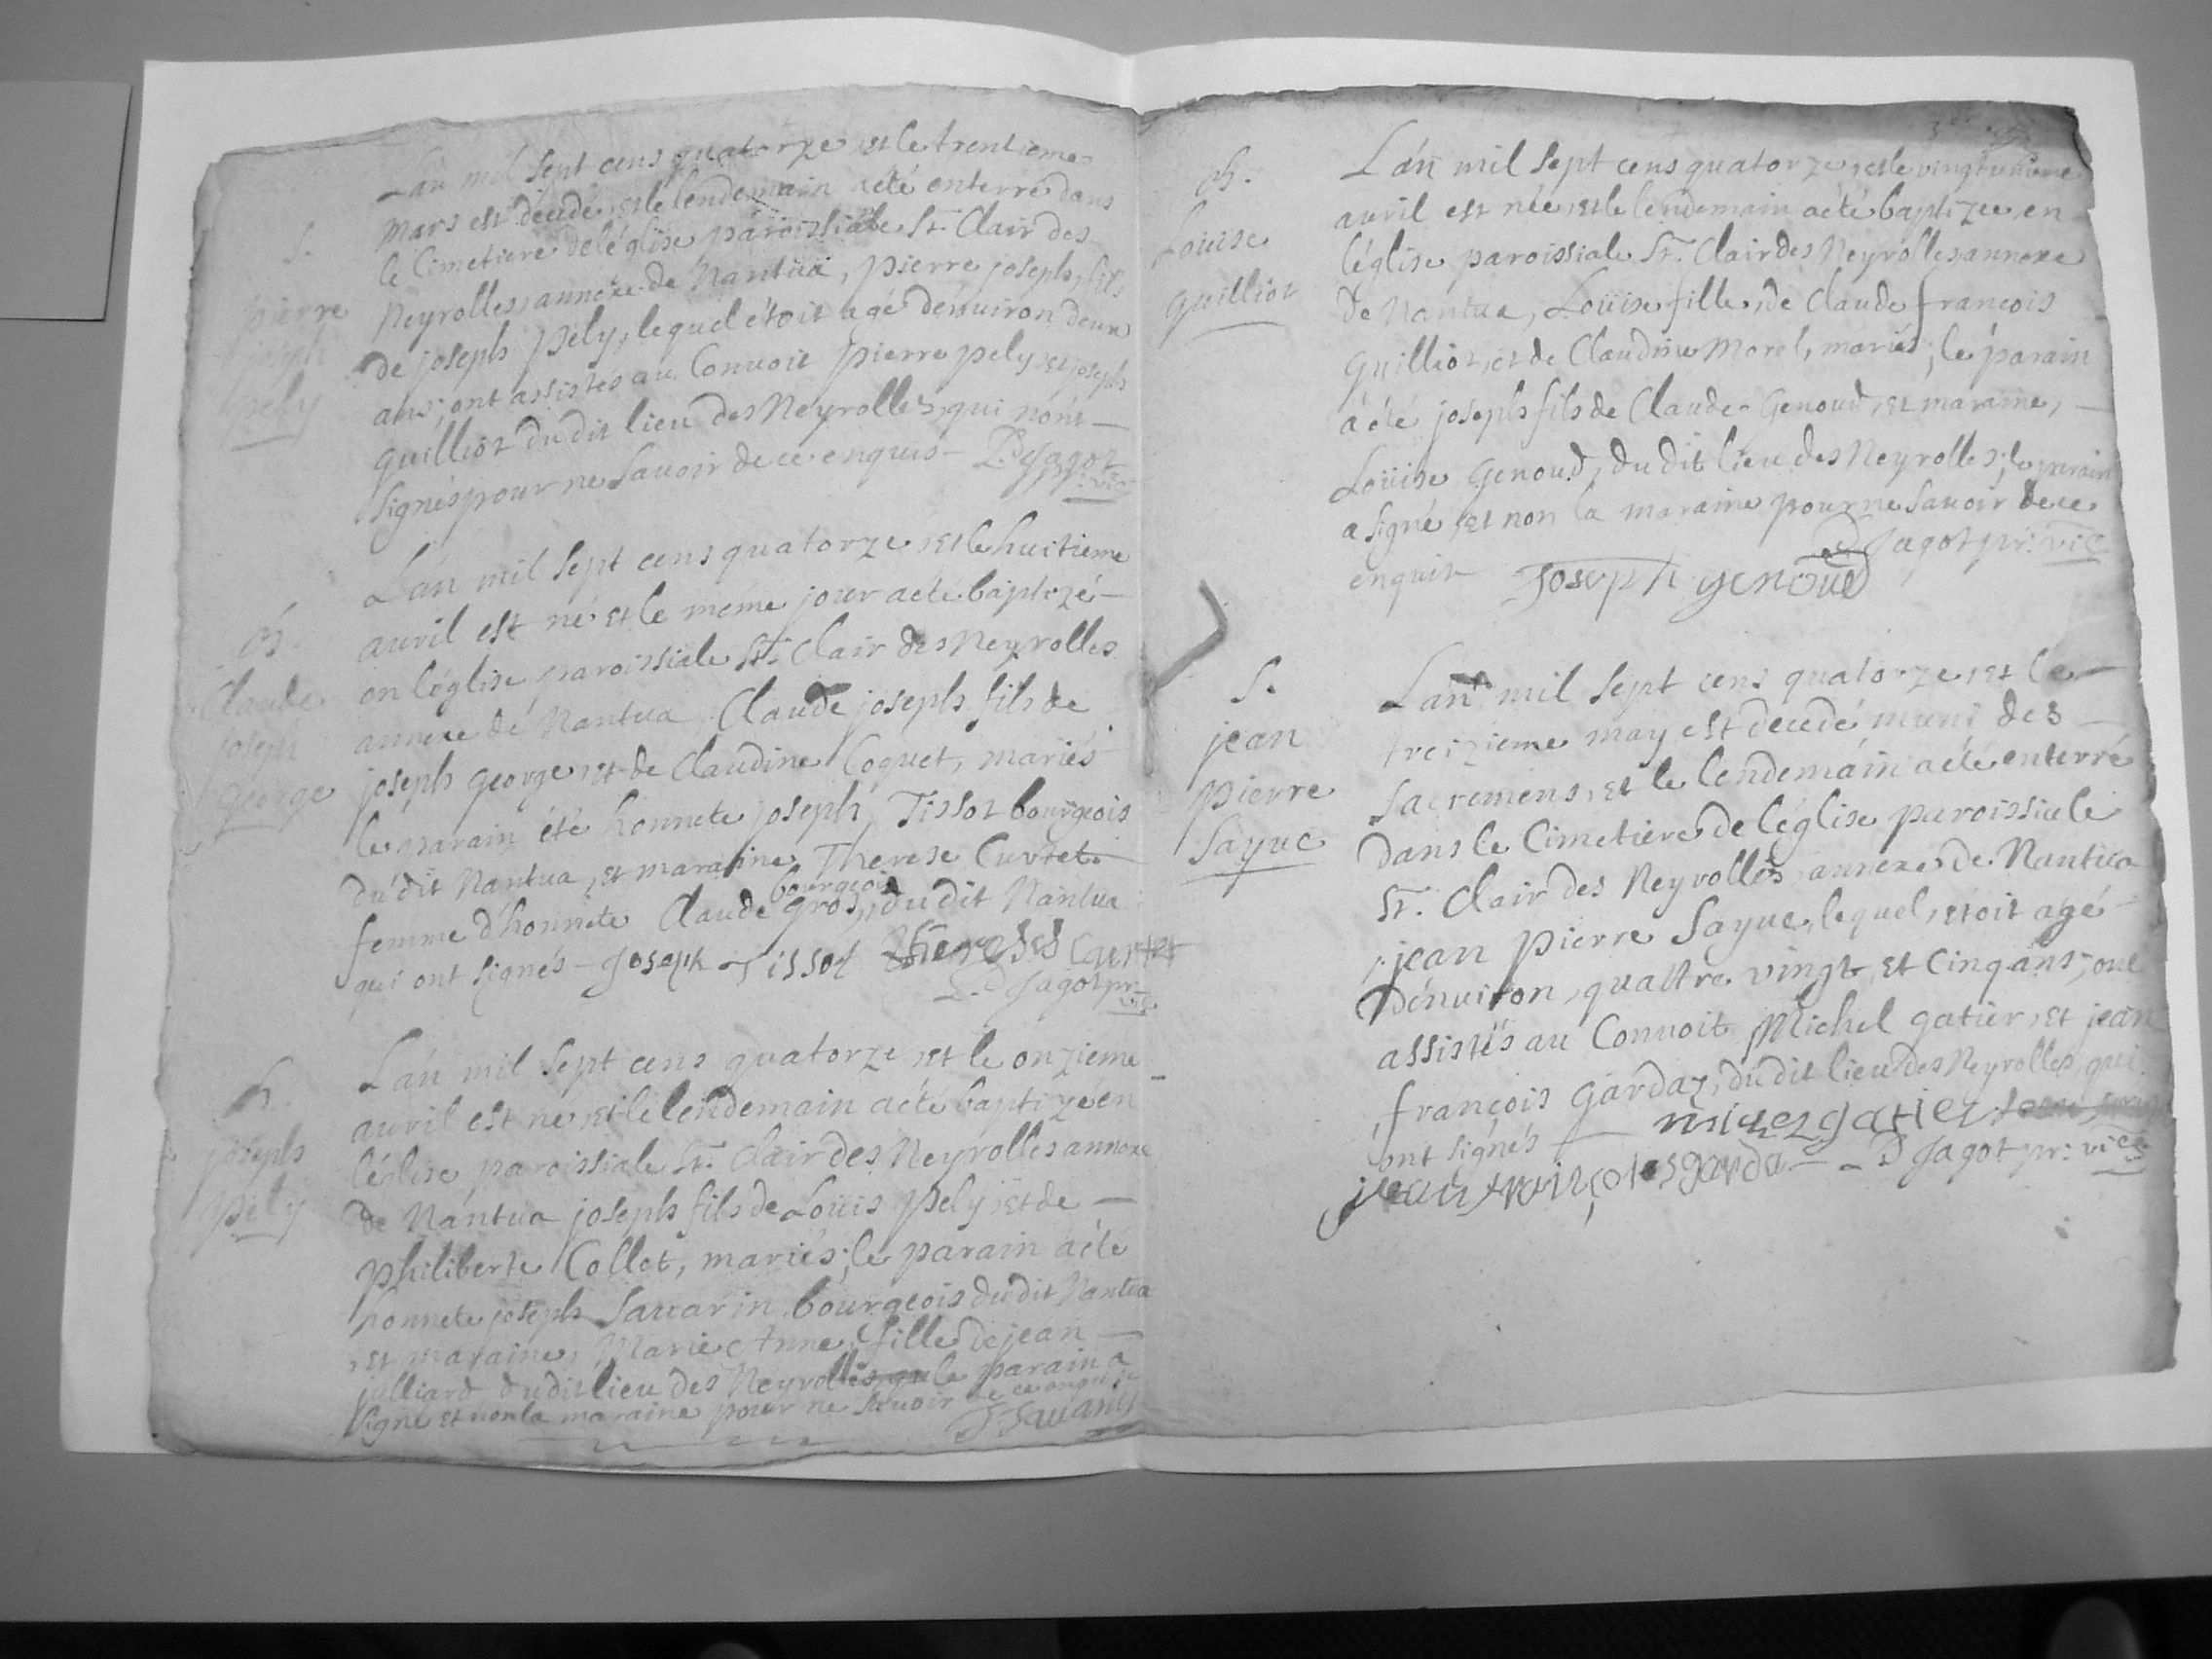 S.
pierre
joseph
pely
Lán mil sept cens quatorze, et le trentieme
mars est décedé, et le lendemain a eté enterré dans
le Cimetiere de léglise paroissiale St. Clair des
Neyrolles, annexe de Nantüa, pierre joseph, fils
de joseph pely, lequel étoit agé dénuiron deux
ans; ont assistés au Conuoit pierre pely et joseph
guilliot du dit lieu des Neyrolles, qui nónt
signés pour ne sauoir de ce enquis - P. D Jagot
B.
Claude
joseph
george
Lán mil sept cens quatorze, et le huitieme
auril est né et le meme jour a eté baptizé
en léglise paroissiale St. Clair des Neyrolles
annexe de Nantua Claude joseph fils de
joseph george, et de Claudine Coquet, mariés
le parain été honnete joseph Tissot bourgeois
du dit Nantua, et maraine Therese Curtet
femme d'honnete Claude gros, bourgeois du dit Nantua
qui ont signés - Joseph Tissot Theresse Curtet
P. D Jagot pr: vic
B.
joseph
pely
Lán mil sept cens quatorze, et le onzieme
auril est né, et le lendemain a eté baptizé en
léglise paroissiale St. Clair des Neyrolles annexe
de Nantua joseph fils de Loüis pely, et de
philiberte Collet, mariés; le parain a eté
honnete joseph Sauarin bourgeois du dit Nantua
et maraine, Marie Anne, fille de jean
julliard du dit lieu des Neyrolles, le parain a
signé et non la maraine pour ne sauoir de ce enquise
J. Sauarin
B.
Loüise
guilliot
Lán mil sept cens quatorze, et le vingtunieme
auril est née, et le lendemain a eté baptizee, en
léglise paroissiale St. Clair des Neyrolles annexe
de Nantua, Loüise fille, de Claude françois
guilliot, et de Claudine Morel, mariés; le parain
a eté joseph fils de Claude Genoud, et maraine,
Loüise Genoud, du dit lieu des Neyrolles; le parain
a signé, et non la maraine pour ne sauoir de ce
enquise P. D Jagot pr: vic
Joseph genoud
S.
jean
pierre
Sayue
Lán mil sept cens quatorze, et le
treizieme may est decedé muni des
sacremens, et le lendemáin a eté enterré
dans le Cimetiere de léglise paroissiale
St. Clair des Neyrolles annexe de Nantua
jean pierre Sayue, lequel, etoit agé
dénuiron, quattre vingt, et cinq ans; ont
assistés au Conuoit Michel gatier, et jean
françois gardaz, du dit lieu des Neyrolles, qui
ont signés michel gatier
jean françoies garda - P. D Jagot pr: vic